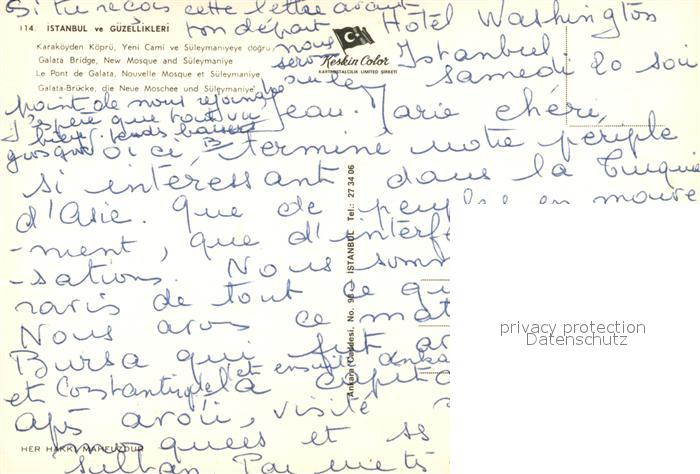 Si tu reçois cette lettre avant
ton départ
nous
114. İSTANBUL ve GÜZELLİKLERİ
Karaköyden Köprü, Yeni Cami ve Süleymaniyeye doğru
Galata Bridge, New Mosque and Süleymaniye
Le Pont de Galata, Nouvelle Mosque et Süleymaniye
Galata-Brücke, die Neue Moschee und Süleymaniye
Keskin Color
KARTPOSTALCILIK LIMITED ŞİRKETİ
Hôtel Washington
Istanbul
Samedi 20 soir
point de nous rejoindre
J'espère que tout va
bien. tendres baisers
Jean-Marie chéri,
terminé notre périple
si intéressant dans la Turquie
d'Asie. Que de en mouve
-ment, que d'
-sations. Nous somm
ravis de tout ce qu
Nous avons ce mat
Bursa qui fut
et ensuite Anka
et Constantinople
après avoir, visité
mosquées et
Sultan
Ankara Caddesi, No. 98 — İSTANBUL Tel.: 27 34 06
HER HAKKI MAHFUZDUR
privacy protection
Datenschutz